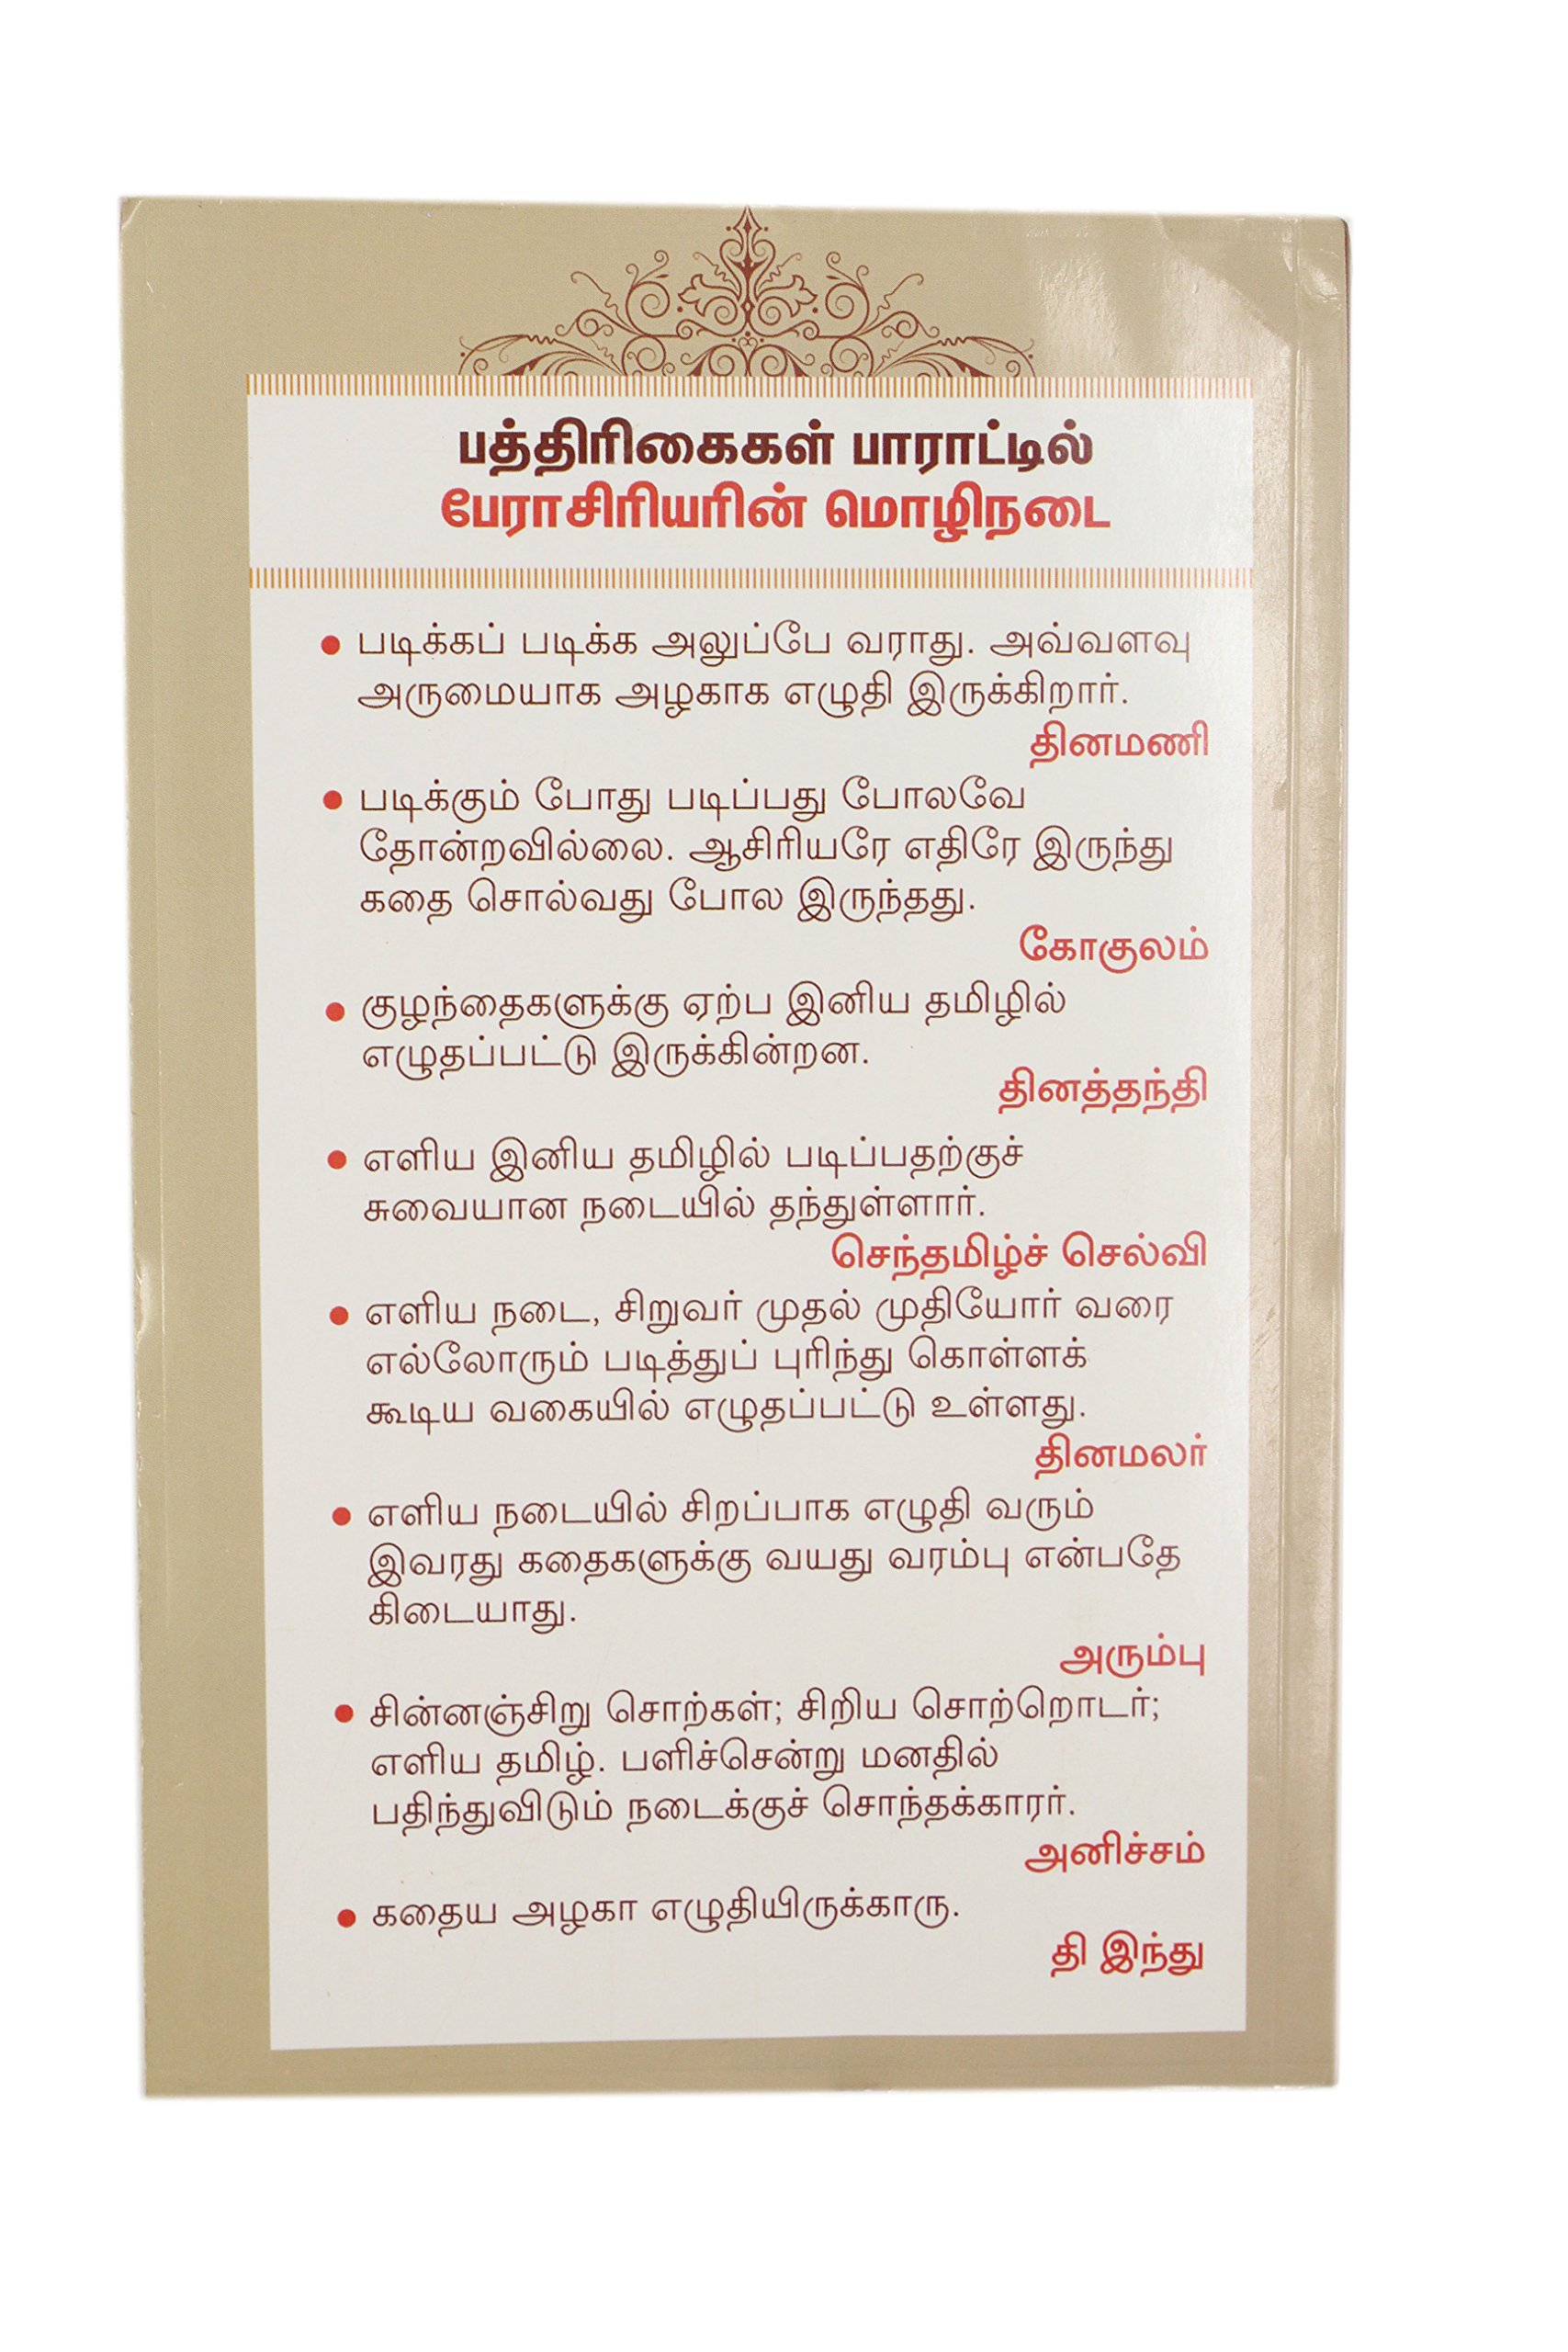 பத்திரிகைகள் பாராட்டில்
பேராசிரியரின் மொழிநடை
• படிக்கப் படிக்க அலுப்பே வராது. அவ்வளவு
அருமையாக அழகாக எழுதி இருக்கிறார்.
தினமணி
• படிக்கும் போது படிப்பது போலவே
தோன்றவில்லை. ஆசிரியரே எதிரே இருந்து
கதை சொல்வது போல இருந்தது.
கோகுலம்
• குழந்தைகளுக்கு ஏற்ப இனிய தமிழில்
எழுதப்பட்டு இருக்கின்றன.
தினத்தந்தி
• எளிய இனிய தமிழில் படிப்பதற்குச்
சுவையான நடையில் தந்துள்ளார்.
செந்தமிழ்ச் செல்வி
• எளிய நடை, சிறுவர் முதல் முதியோர் வரை
எல்லோரும் படித்துப் புரிந்து கொள்ளக்
கூடிய வகையில் எழுதப்பட்டு உள்ளது.
தினமலர்
• எளிய நடையில் சிறப்பாக எழுதி வரும்
இவரது கதைகளுக்கு வயது வரம்பு என்பதே
கிடையாது.
அரும்பு
• சின்னஞ்சிறு சொற்கள்; சிறிய சொற்றொடர்;
எளிய தமிழ். பளிச்சென்று மனதில்
பதிந்துவிடும் நடைக்குச் சொந்தக்காரர்.
அனிச்சம்
• கதைய அழகா எழுதியிருக்காரு.
தி இந்து